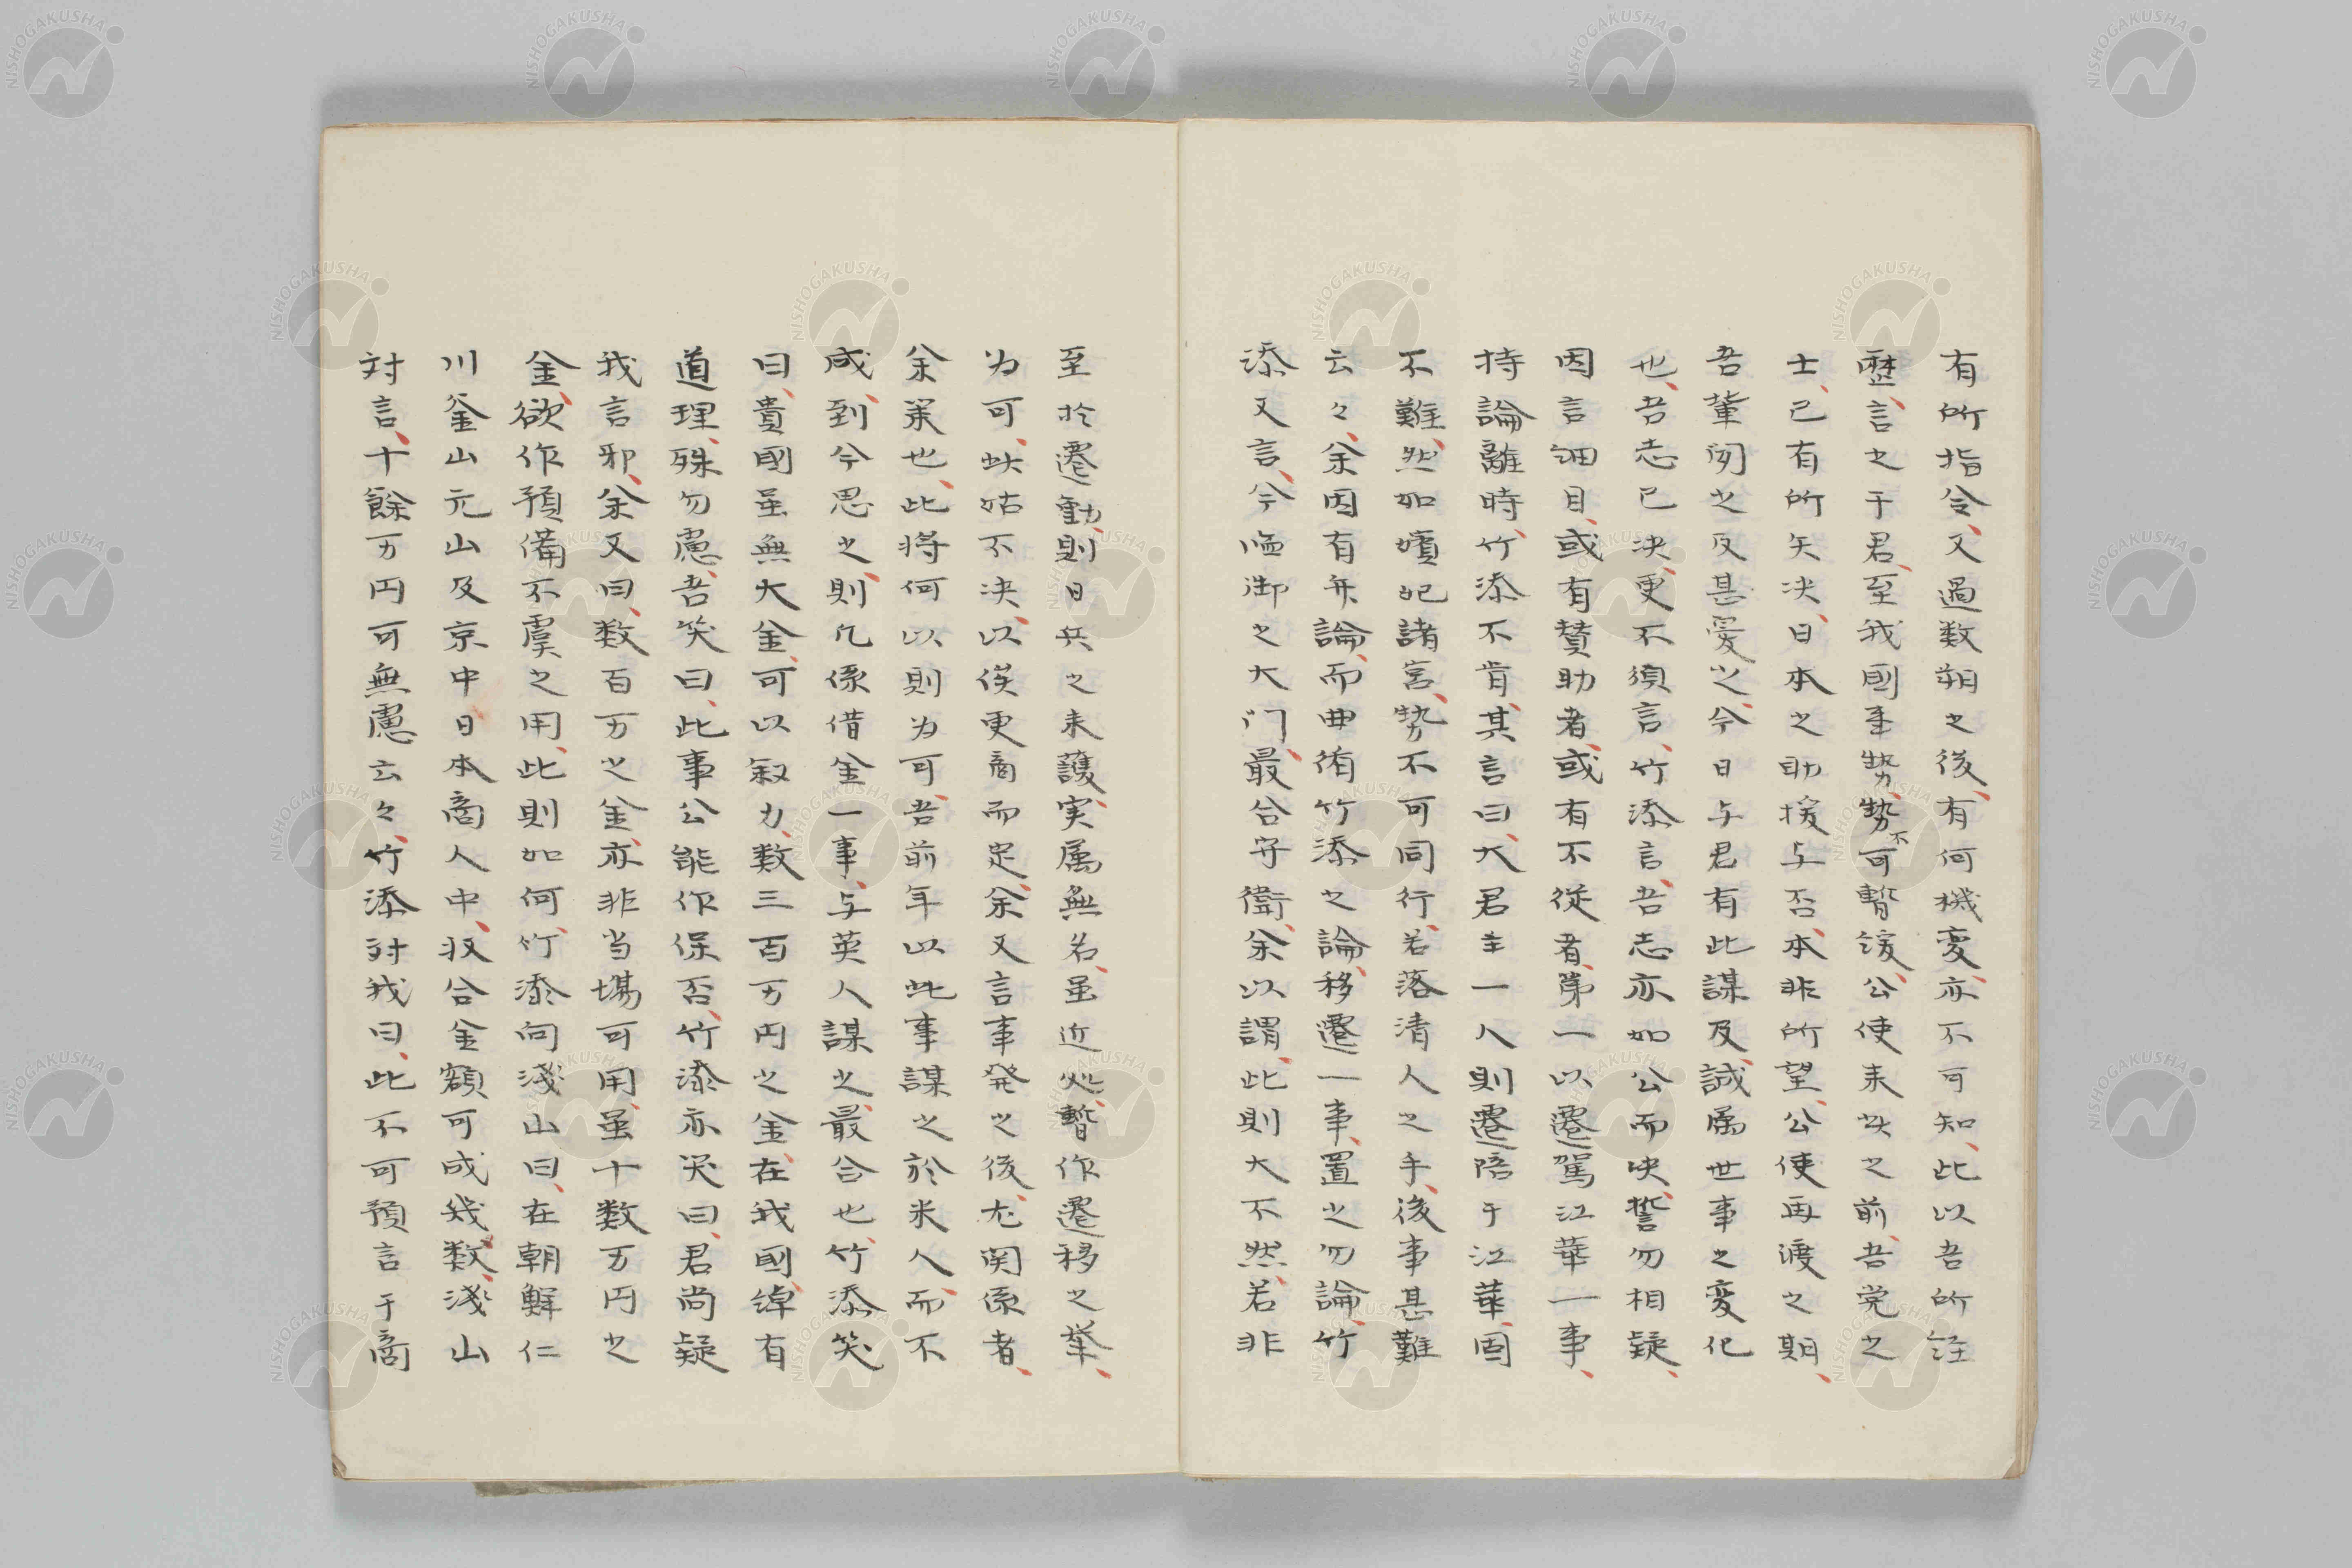 有所指令、又過数朔之後、有何機変、亦不可知、此以吾所詮
歴言之于君、至我國事勢、勢不可暫緩、公使未發之前、吾党之
士、已有所矢决、日本之助援与否、本非所望、公使再渡之期、
吾輩聞之反甚憂之、今日与君有此謀及、誠属世事之変化
也、吾志已决、更不須言、竹添言、吾志亦如公而决、誓勿相疑、
因言細目、或有賛助者、或有不從者、第一以遷駕江華一事、
持論離時、竹添不肯、其言曰、大君主一人則遷陪于江華、固
不難、然如嬪妃諸宮、勢不可同行、若落清人之手、後事甚難
云々、余因有弁論、而曲循竹添之論、移遷一事、置之勿論、竹
添又言、今陋御之大门、最合守衛、余以謂、此則大不然、若非
至於遷動、則日兵之来護、実属無名、虽近処、暫作遷移之挙、
为可、此姑不决、以俟更商而定、余又言事発之後、尤関係者、
余策也、此将何以則为可、吾前年以此事謀之於米人、而不
成、到今思之、則凡係借金一事、与英人謀之、最合也、竹添笑
曰、貴國虽無大金、可以叙力、数三百万円之金、在我國、綽有
道理、殊勿慮、吾笑曰、此事公能作保否、竹添亦笑曰、君尚疑
我言邪、余又曰、数百万之金、亦非当場可用、虽十数万円之
金、欲作預備不虞之用、此則如何、竹添向淺山曰、在朝鮮仁
川釜山元山及京中日本商人中、収合金額可成幾数、淺山
対言、十餘万円可無慮云々、竹添対我曰、此不可預言于商